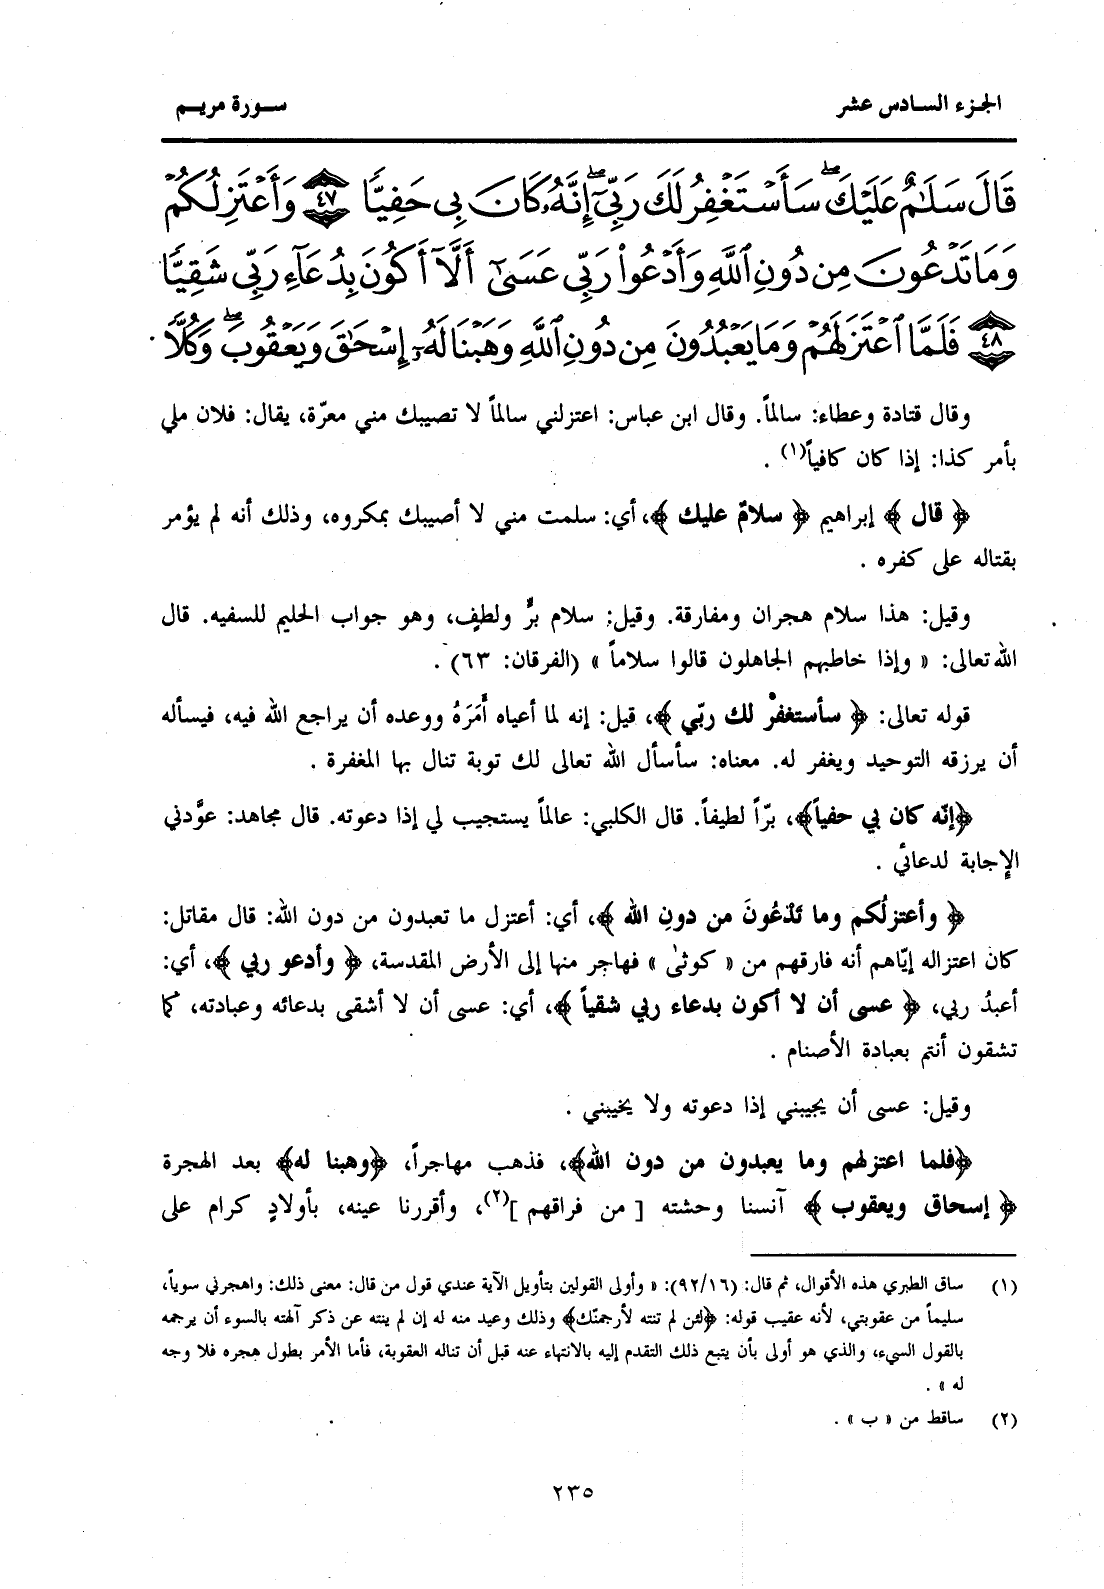 الجزء السادس عشر
سورة مريم
قَالَ سَلَٰمٌ عَلَيْكَ ۖ سَأَسْتَغْفِرُ لَكَ رَبِّىٓ ۖ إِنَّهُۥ كَانَ بِى حَفِيًّا ٤٧ وَأَعْتَزِلُكُمْ
وَمَا تَدْعُونَ مِن دُونِ ٱللَّهِ وَأَدْعُوا۟ رَبِّى عَسَىٰٓ أَلَّآ أَكُونَ بِدُعَآءِ رَبِّى شَقِيًّا
٤٨ فَلَمَّا ٱعْتَزَلَهُمْ وَمَا يَعْبُدُونَ مِن دُونِ ٱللَّهِ وَهَبْنَا لَهُۥٓ إِسْحَٰقَ وَيَعْقُوبَ ۖ وَكُلًّا
وقال قتادة وعطاء: سالماً. وقال ابن عباس: اعتزلني سالماً لا تصيبك مني معرّة، يقال: فلان ملي
بأمر كذا: إذا كان كافياً(١) .
﴿ قال ﴾ إبراهيم ﴿ سلامٌ عليك ﴾، أي: سلمت مني لا أصيبك بمكروه، وذلك أنه لم يؤمر
بقتاله على كفره .
وقيل: هذا سلام هجران ومفارقة. وقيل: سلام برٍّ ولطفٍ، وهو جواب الحليم للسفيه. قال
الله تعالى: « وإذا خاطبهم الجاهلون قالوا سلاماً » (الفرقان: ٦٣) .
قوله تعالى: ﴿ سأستغفرُ لك ربّي ﴾، قيل: إنه لما أعياه أَمَرَهُ ووعده أن يراجع الله فيه، فيسأله
أن يرزقه التوحيد ويغفر له. معناه: سأسأل الله تعالى لك توبة تنال بها المغفرة .
﴿إنّه كان بي حفياً﴾، برّاً لطيفاً. قال الكلبي: عالماً يستجيب لي إذا دعوته. قال مجاهد: عوَّدني
الإجابة لدعائي .
﴿ وأعتزلُكم وما تَدْعُونَ من دونِ الله ﴾، أي: أعتزل ما تعبدون من دون الله: قال مقاتل:
كان اعتزاله إيّاهم أنه فارقهم من « كوثىٰ » فهاجر منها إلى الأرض المقدسة، ﴿ وأدعو ربي ﴾، أي:
أعبدُ ربي، ﴿ عسى أن لا أكون بدعاء ربي شقياً ﴾، أي: عسى أن لا أشقى بدعائه وعبادته، كما
تشقون أنتم بعبادة الأصنام .
وقيل: عسى أن يجيبني إذا دعوته ولا يخيبني .
﴿فلما اعتزلهم وما يعبدون من دون الله﴾، فذهب مهاجراً، ﴿وهبنا له﴾ بعد الهجرة
﴿ إسحاق ويعقوب ﴾ آنسنا وحشته [ من فراقهم ](٢)، وأقررنا عينه، بأولادٍ كرام على
(١) ساق الطبري هذه الأقوال، ثم قال: (٩٢/١٦): « وأولى القولين بتأويل الآية عندي قول من قال: معنى ذلك: واهجرني سوياً،
سليماً من عقوبتي، لأنه عقيب قوله: ﴿لئن لم تنته لأرجمنّك﴾ وذلك وعيد منه له إن لم ينته عن ذكر آلهته بالسوء أن يرجمه
بالقول السيء، والذي هو أولى بأن يتبع ذلك التقدم إليه بالانتهاء عنه قبل أن تناله العقوبة، فأما الأمر بطول هجره فلا وجه
له » .
(٢) ساقط من « ب » .
٢٣٥